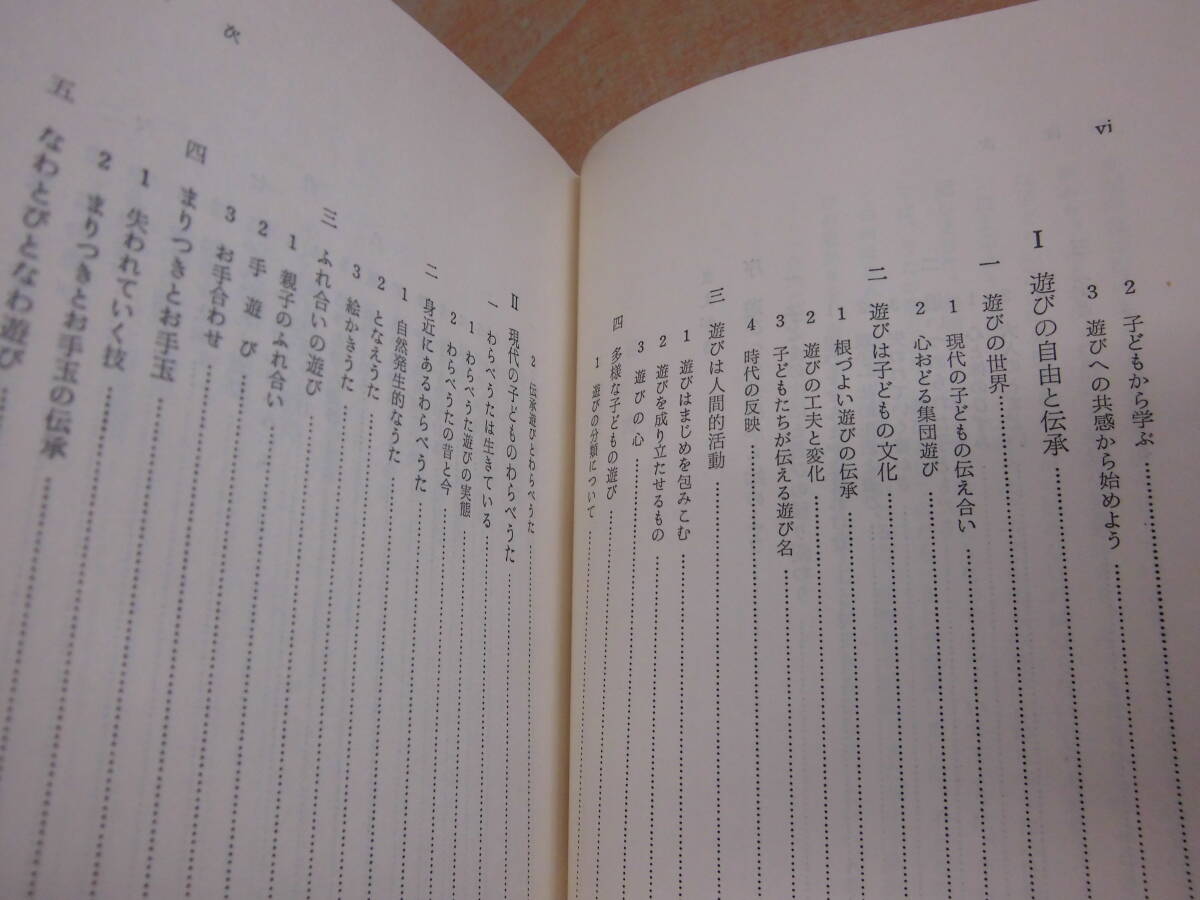 vi
2 子どもから学ぶ
3 遊びへの共感から始めよう
I 遊びの自由と伝承
一 遊びの世界
1 現代の子どもの伝え合い
2 心おどる集団遊び
二 遊びは子どもの文化
1 根づよい遊びの伝承
2 遊びの工夫と変化
3 子どもたちが伝える遊び名
4 時代の反映
三 遊びは人間的活動
1 遊びはまじめを包みこむ
2 遊びを成り立たせるもの
3 遊びの心
四 多様な子どもの遊び
1 遊びの分類について
2 伝承遊びとわらべうた
II 現代の子どものわらべうた
一 わらべうたは生きている
1 わらべうた遊びの実態
2 わらべうたの昔と今
二 身近にあるわらべうた
1 自然発生的なうた
2 となえうた
3 絵かきうた
三 ふれ合いの遊び
1 親子のふれ合い
2 手遊び
3 お手合わせ
四 まりつきとお手玉
1 失われていく技
2 まりつきとお手玉の伝承
五 なわとびとなわ遊び
次